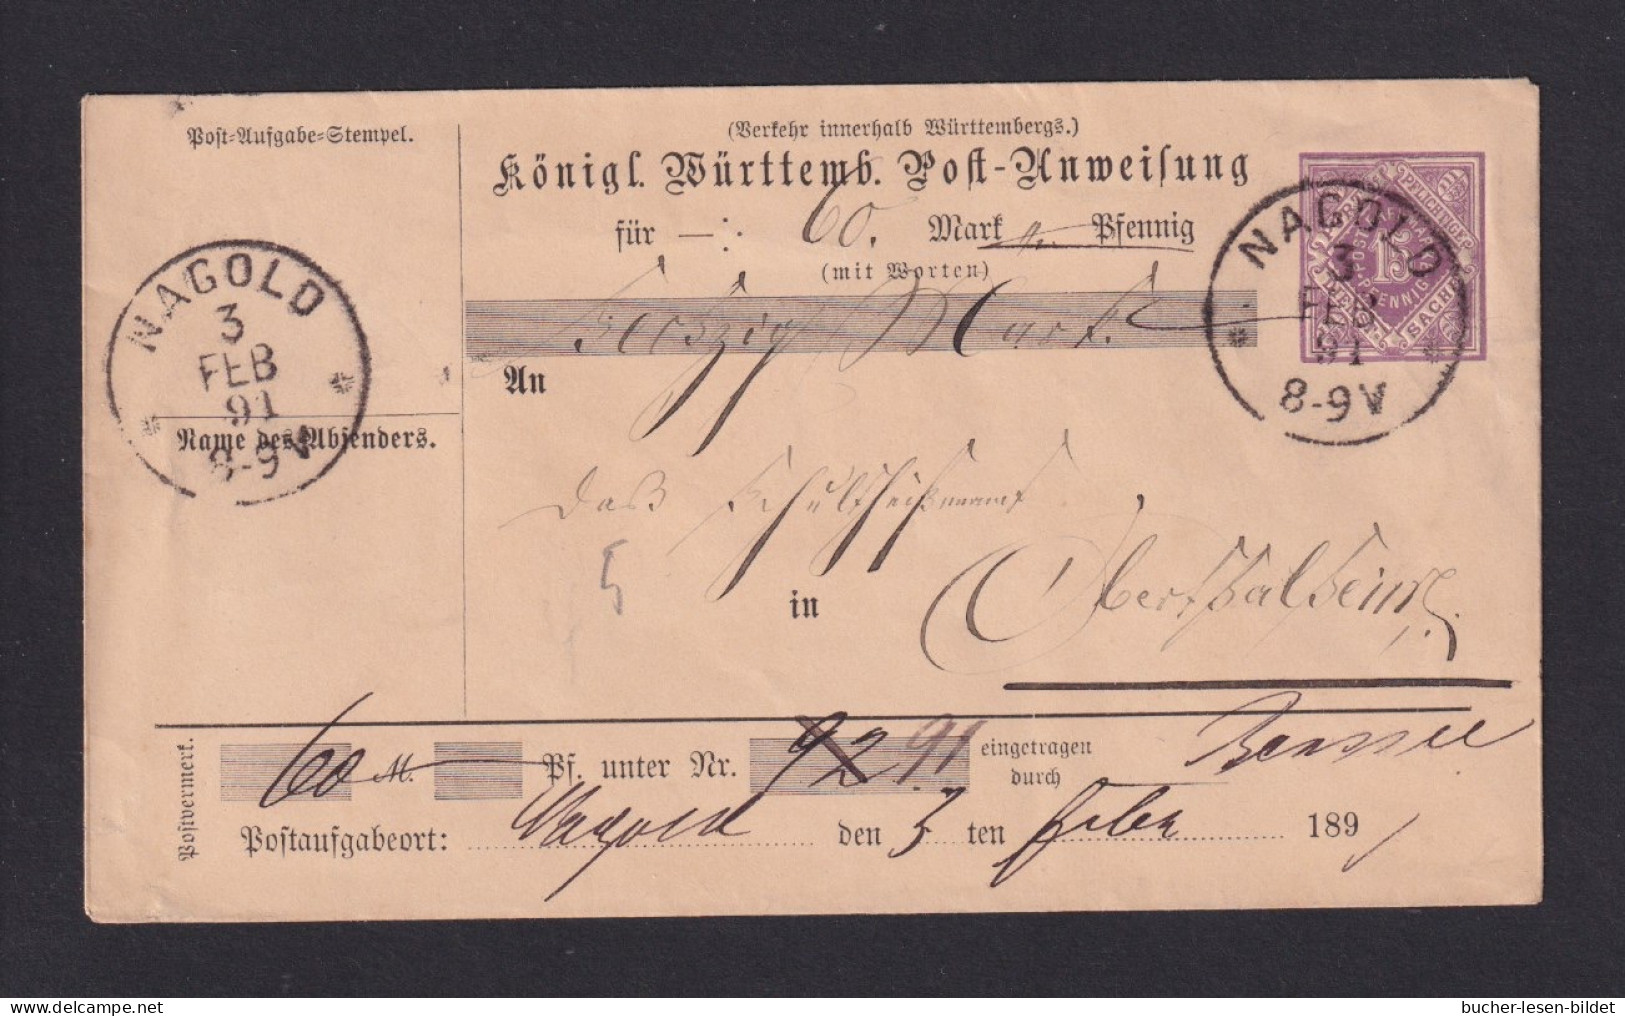 Post-Aufgabe-Stempel.
(Verkehr innerhalb Württembergs.)
Königl. Württemb. Post-Anweisung
für —: 60. Mark Pfennig
(mit Worten)
Sechzig Mark
An
NAGOLD
3
FEB
91
8-9V
Name des Absenders.
NAGOLD
3
FEB
91
8-9V
15
PFENNIG
PFLICHTIGE
SACHE
Das Schultheißenamt
5
in Oberthalheim
Postvermerk.
60 M. Pf. unter Nr. 92 91 eingetragen
durch
Postaufgabeort: Nagold den 3 ten Febr 1891
bucher-lesen-bildet